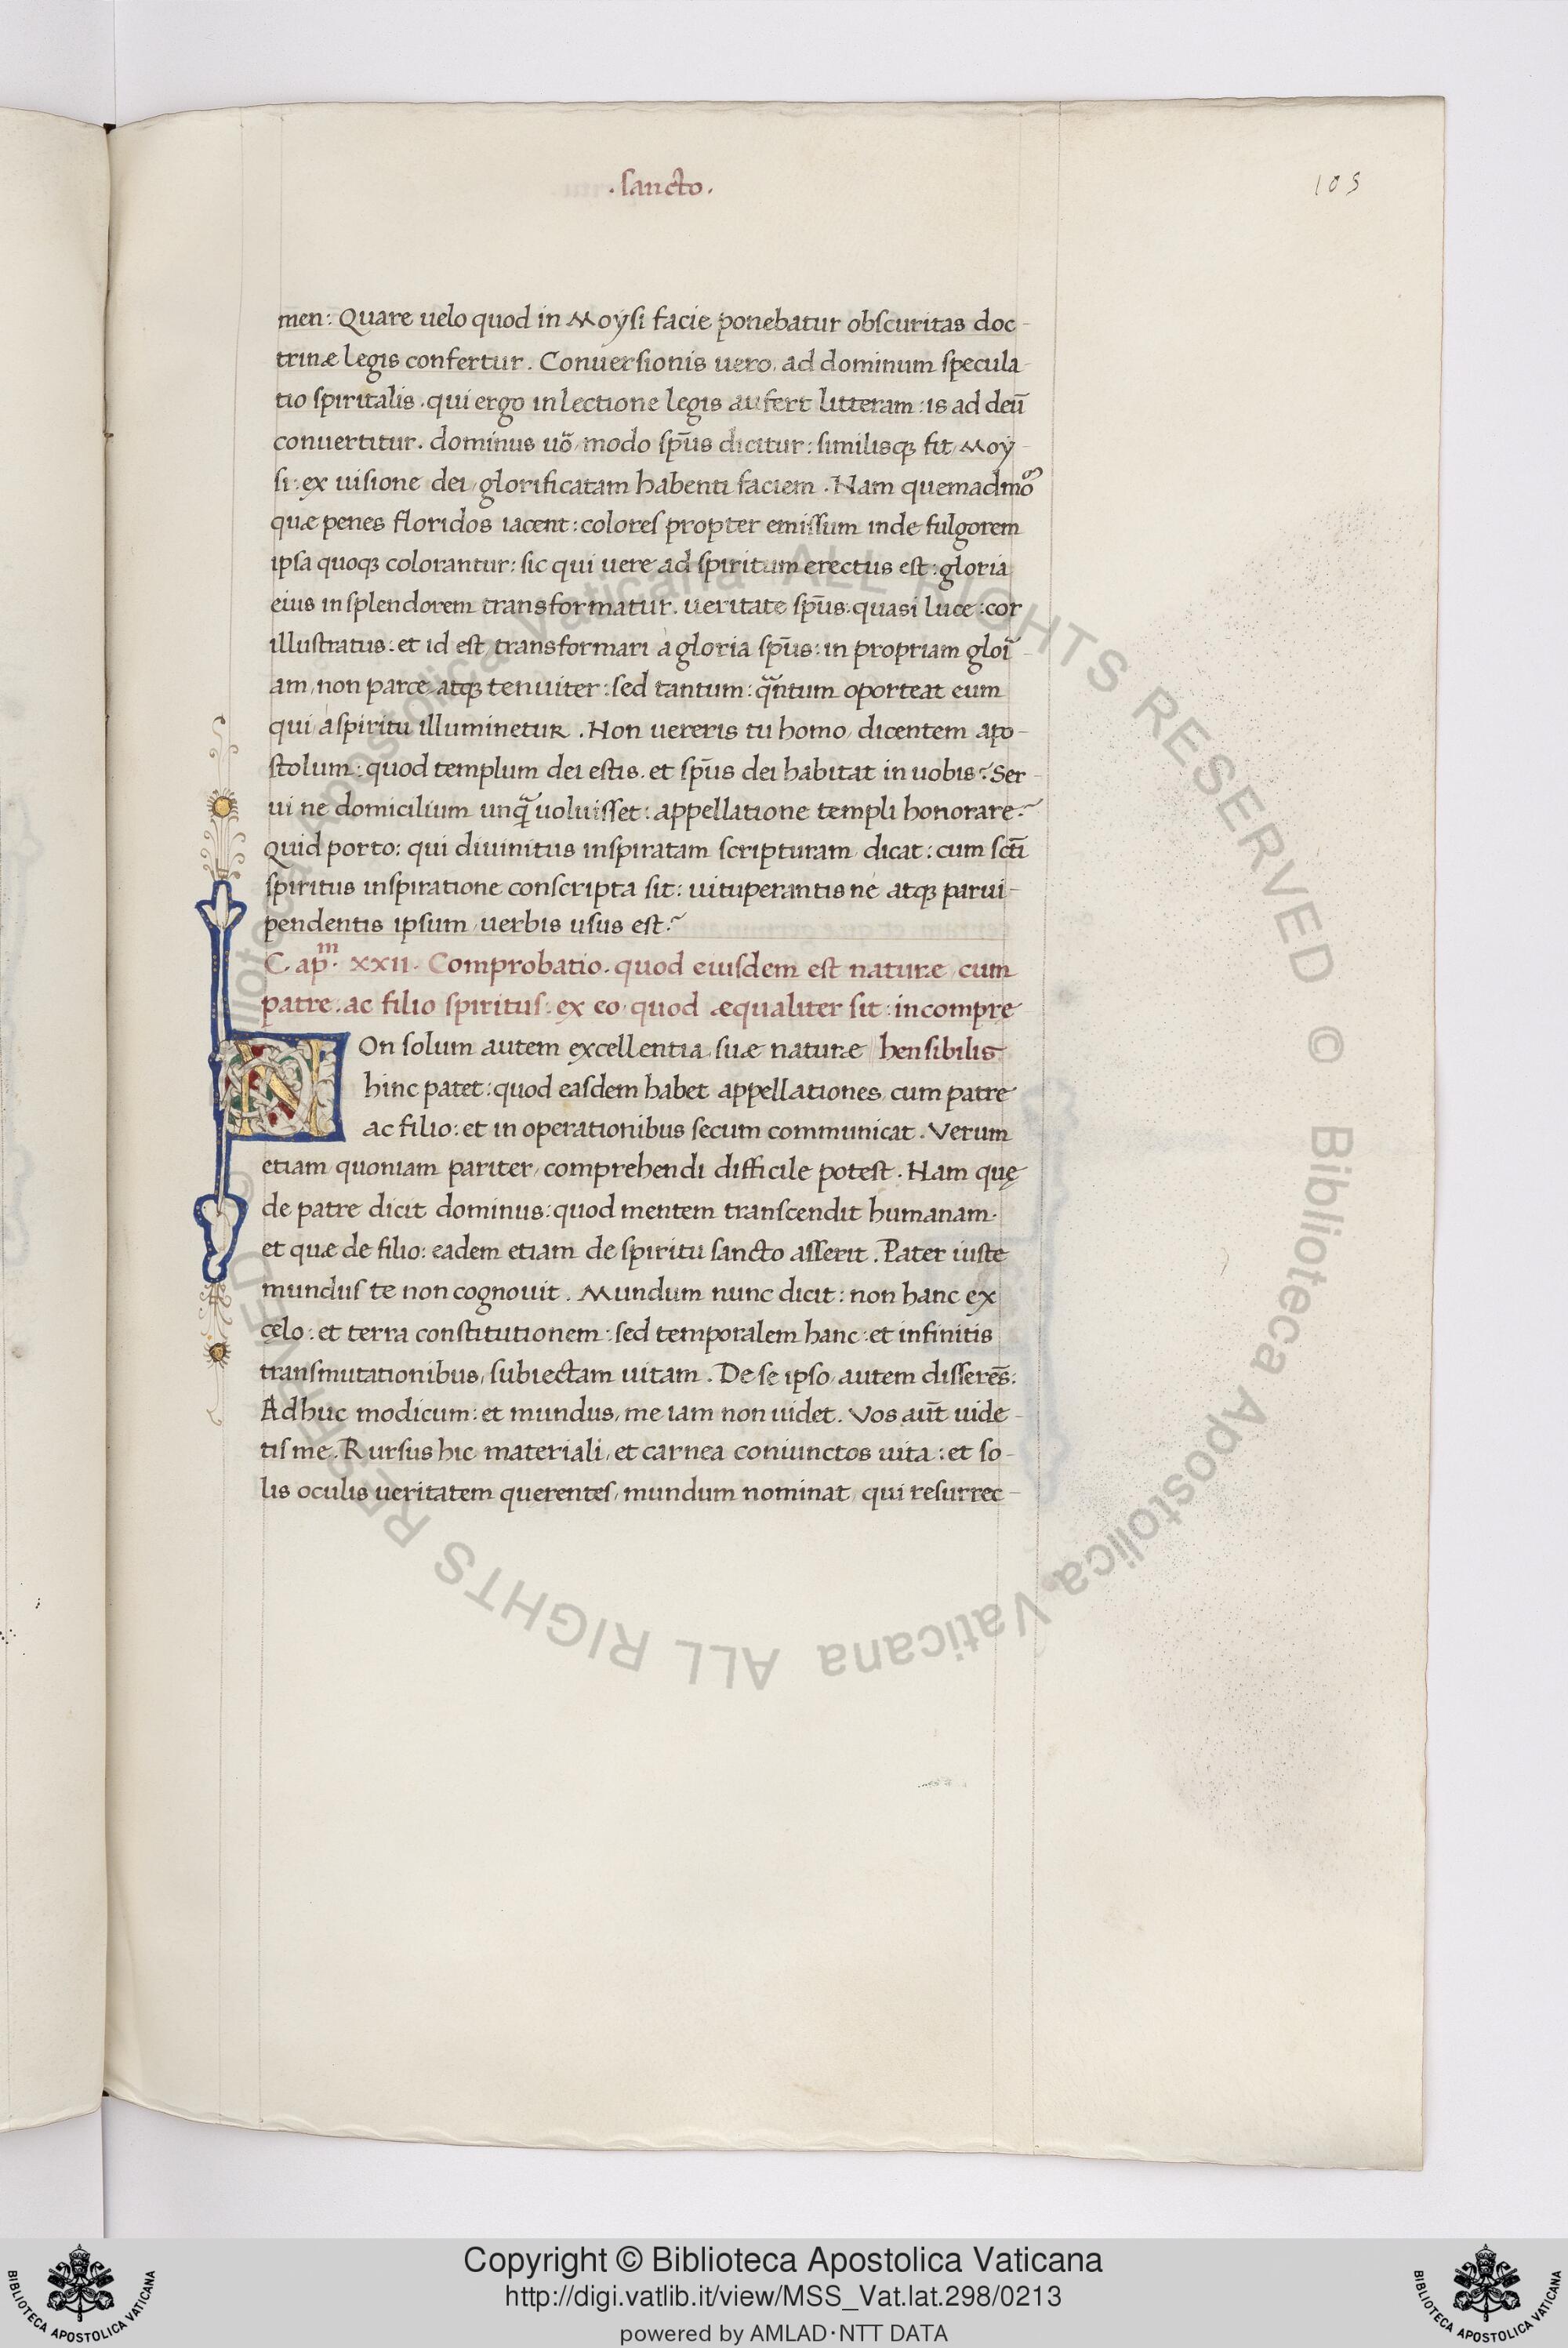 . sancto .
105
m̄en: Quare uelo quod in Moÿsi facie ponebatur obscuritas doc-
trinæ legis confertur. Conuersionis uero, ad dominum specula-
tio spiritalis. qui ergo in lectione legis aufert litteram: is ad deū
conuertitur. dominus uo᷎, modo sp̄us dicitur: similisqꝫ fit, Moÿ-
si: ex uisione dei, glorificatam habenti faciem. Nam quemadmo᷎
quæ penes floridos iacent: colores propter emissum inde fulgorem
ipsa quoqꝫ colorantur: sic qui uere ad spiritum erectus est: gloria
eius in splendorem transformatur. ueritate sp̄us: quasi luce: cor
illustratus: et id est transformari à gloria sp̄us: in propriam glori-
am, non parce atqꝫ tenuiter: sed tantum: q̃ntum oporteat eum
qui à spiritu illuminetur. Non uereris tu homo, dicentem apo-
stolum: quod templum dei estis. et sp̄us dei habitat in uobis? Ser-
ui ne domicilium unq̃ uoluisset: appellatione templi honorare?
Quid porto: qui diuinitus inspiratam scripturam dicat: cum scti̅
spiritus inspiratione conscripta sit: uituperantis ne atqꝫ parui-
pendentis ipsum, uerbis usus est?
C. ap.ᵐ XXII. Comprobatio. quod eiusdem est naturæ, cum
patre. ac filio spiritus: ex eo, quod æqualiter sit: incompre
NOn solum autem excellentia, suæ naturæ hensibilis
hinc patet: quod easdem habet appellationes, cum patre
ac filio: et in operationibus secum communicat. Verum
etiam quoniam pariter, comprehendi difficile potest. Nam quę
de patre dicit dominus: quod mentem transcendit humanam.
et quæ de filio: eadem etiam de spiritu sancto asserit. Pater iuste
mundus te non cognouit. Mundum nunc dicit: non hanc ex
celo: et terra constitutionem: sed temporalem hanc: et infinitis
transmutationibus, subiectam uitam. De se ipso, autem disserēs:
Adhuc modicum: et mundus, me iam non uidet. Vos aut̄ uide-
tis me. Rursus hic materiali, et carnea coniunctos uita: et so-
lis oculis ueritatem querentes, mundum nominat, qui resurrec-
© Biblioteca Apostolica Vaticana ALL RIGHTS RESERVED © Biblioteca Apostolica Vaticana ALL RIGHTS RESERVED
Copyright © Biblioteca Apostolica Vaticana
http://digi.vatlib.it/view/MSS_Vat.lat.298/0213
powered by AMLAD·NTT DATA
BIBLIOTECA APOSTOLICA VATICANA
BIBLIOTECA APOSTOLICA VATICANA